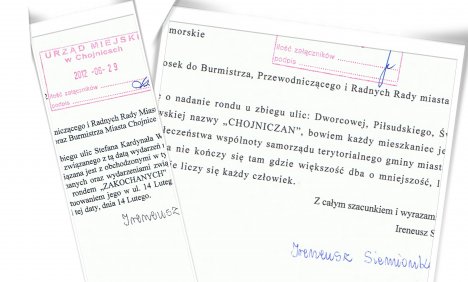 URZĄD MIEJSKI
w Chojnicach
2012 -05- 29
ilość załączników
podpis
niczącego i Radnych Rady Mias
oraz Burmistrza Miasta Chojnice
biegu ulic Stefana Kardynała W
związanego z tą datą wydarzeń
iązana jest z obchodzonymi w ty
zanych oraz wydarzeniami zwią
rondem „ZAKOCHANYCH"
tuowaniem jego w ul. 14 Luteg
i tej daty, dnia 14 Lutego.
Ireneusz
morskie
ilość załączników
podpis
osek do Burmistrza, Przewodniczącego i Radnych Rady miasta
ę o nadanie rondu u zbiegu ulic: Dworcowej, Piłsudskiego, Ś
wskiej nazwy „CHOJNICZAN", bowiem każdy mieszkaniec je
eczeństwa wspólnoty samorządu terytorialnego gminy miast
a nie kończy się tam gdzie większość dba o mniejszość, l
je liczy się każdy człowiek.
Z całym szacunkiem i wyrazam
Ireneusz S
Ireneusz